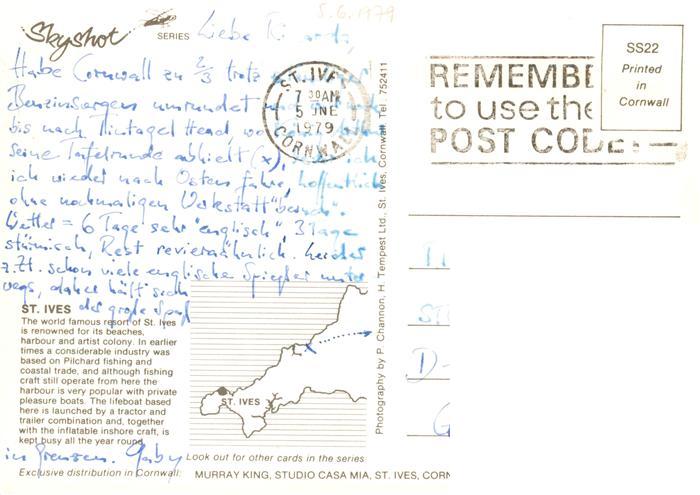 5.6.1979
Skyshot
SERIES
Liebe
Habe Cornwall zu 2/3 trotz
Benzinsorgen umrundet
bis nach Tintagel Head, wo
seine Tafelrunde abhielt (x),
ich wieder nach Osten fahre, hoffentlich
ohne nochmaligen Werkstatt"besuch".
Wetter = 6 Tage sehr "englisch", 3 Tage
stürmisch, Rest rivieraähnlich. Leider
z.Zt. schon viele englische Spießer unter
wegs, daher hält sich
der große Spaß
in Grenzen. Gaby
ST. IVES
The world famous resort of St. Ives
is renowned for its beaches,
harbour and artist colony. In earlier
times a considerable industry was
based on Pilchard fishing and
coastal trade, and although fishing
craft still operate from here the
harbour is very popular with private
pleasure boats. The lifeboat based
here is launched by a tractor and
trailer combination and, together
with the inflatable inshore craft, is
kept busy all the year round.
ST. IVES
Look out for other cards in the series
Exclusive distribution in Cornwall: MURRAY KING, STUDIO CASA MIA, ST. IVES, CORN
Photography by P. Channon, H. Tempest Ltd., St. Ives, Cornwall Tel. 752411
ST. IVES
7 30AM
5 JNE
1979
CORNWALL
REMEMBE
to use the
POST CODE
SS22
Printed
in
Cornwall
D-
G